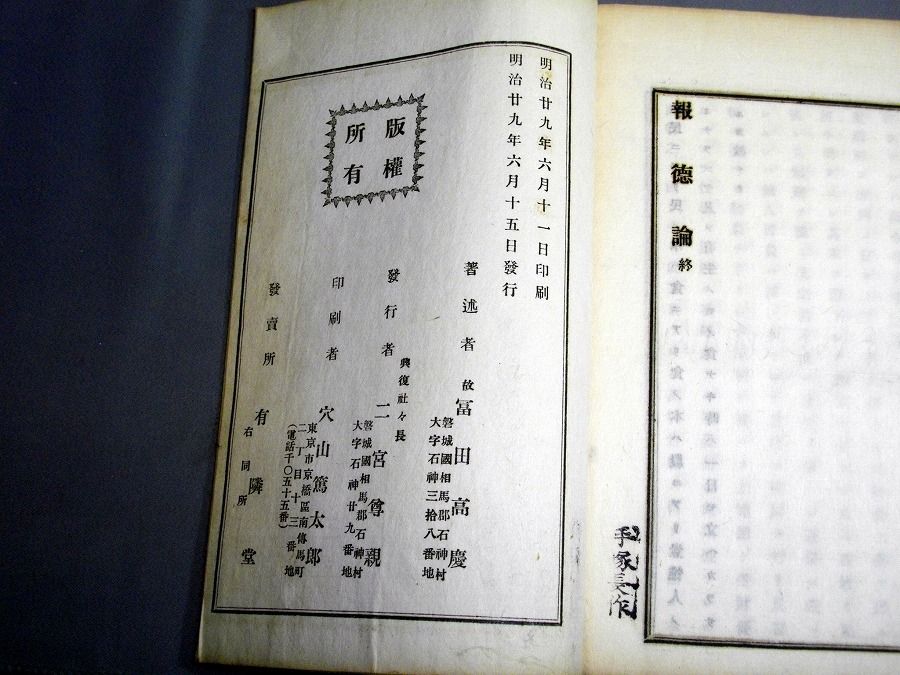 報徳論 終
手塚長作
明治廿九年六月十一日印刷
明治廿九年六月十五日發行
版權
所有
著述者 故 冨田高慶
磐城國相馬郡石神村
大字石神三拾八番地
發行者 興復社々長 二宮尊親
磐城國相馬郡石神村
大字石神廿九番地
印刷者 穴山篤太郎
東京市京橋區南傳馬町
二丁目十三番地
(電話千〇五十五番)
發賣所 有隣堂
右同所